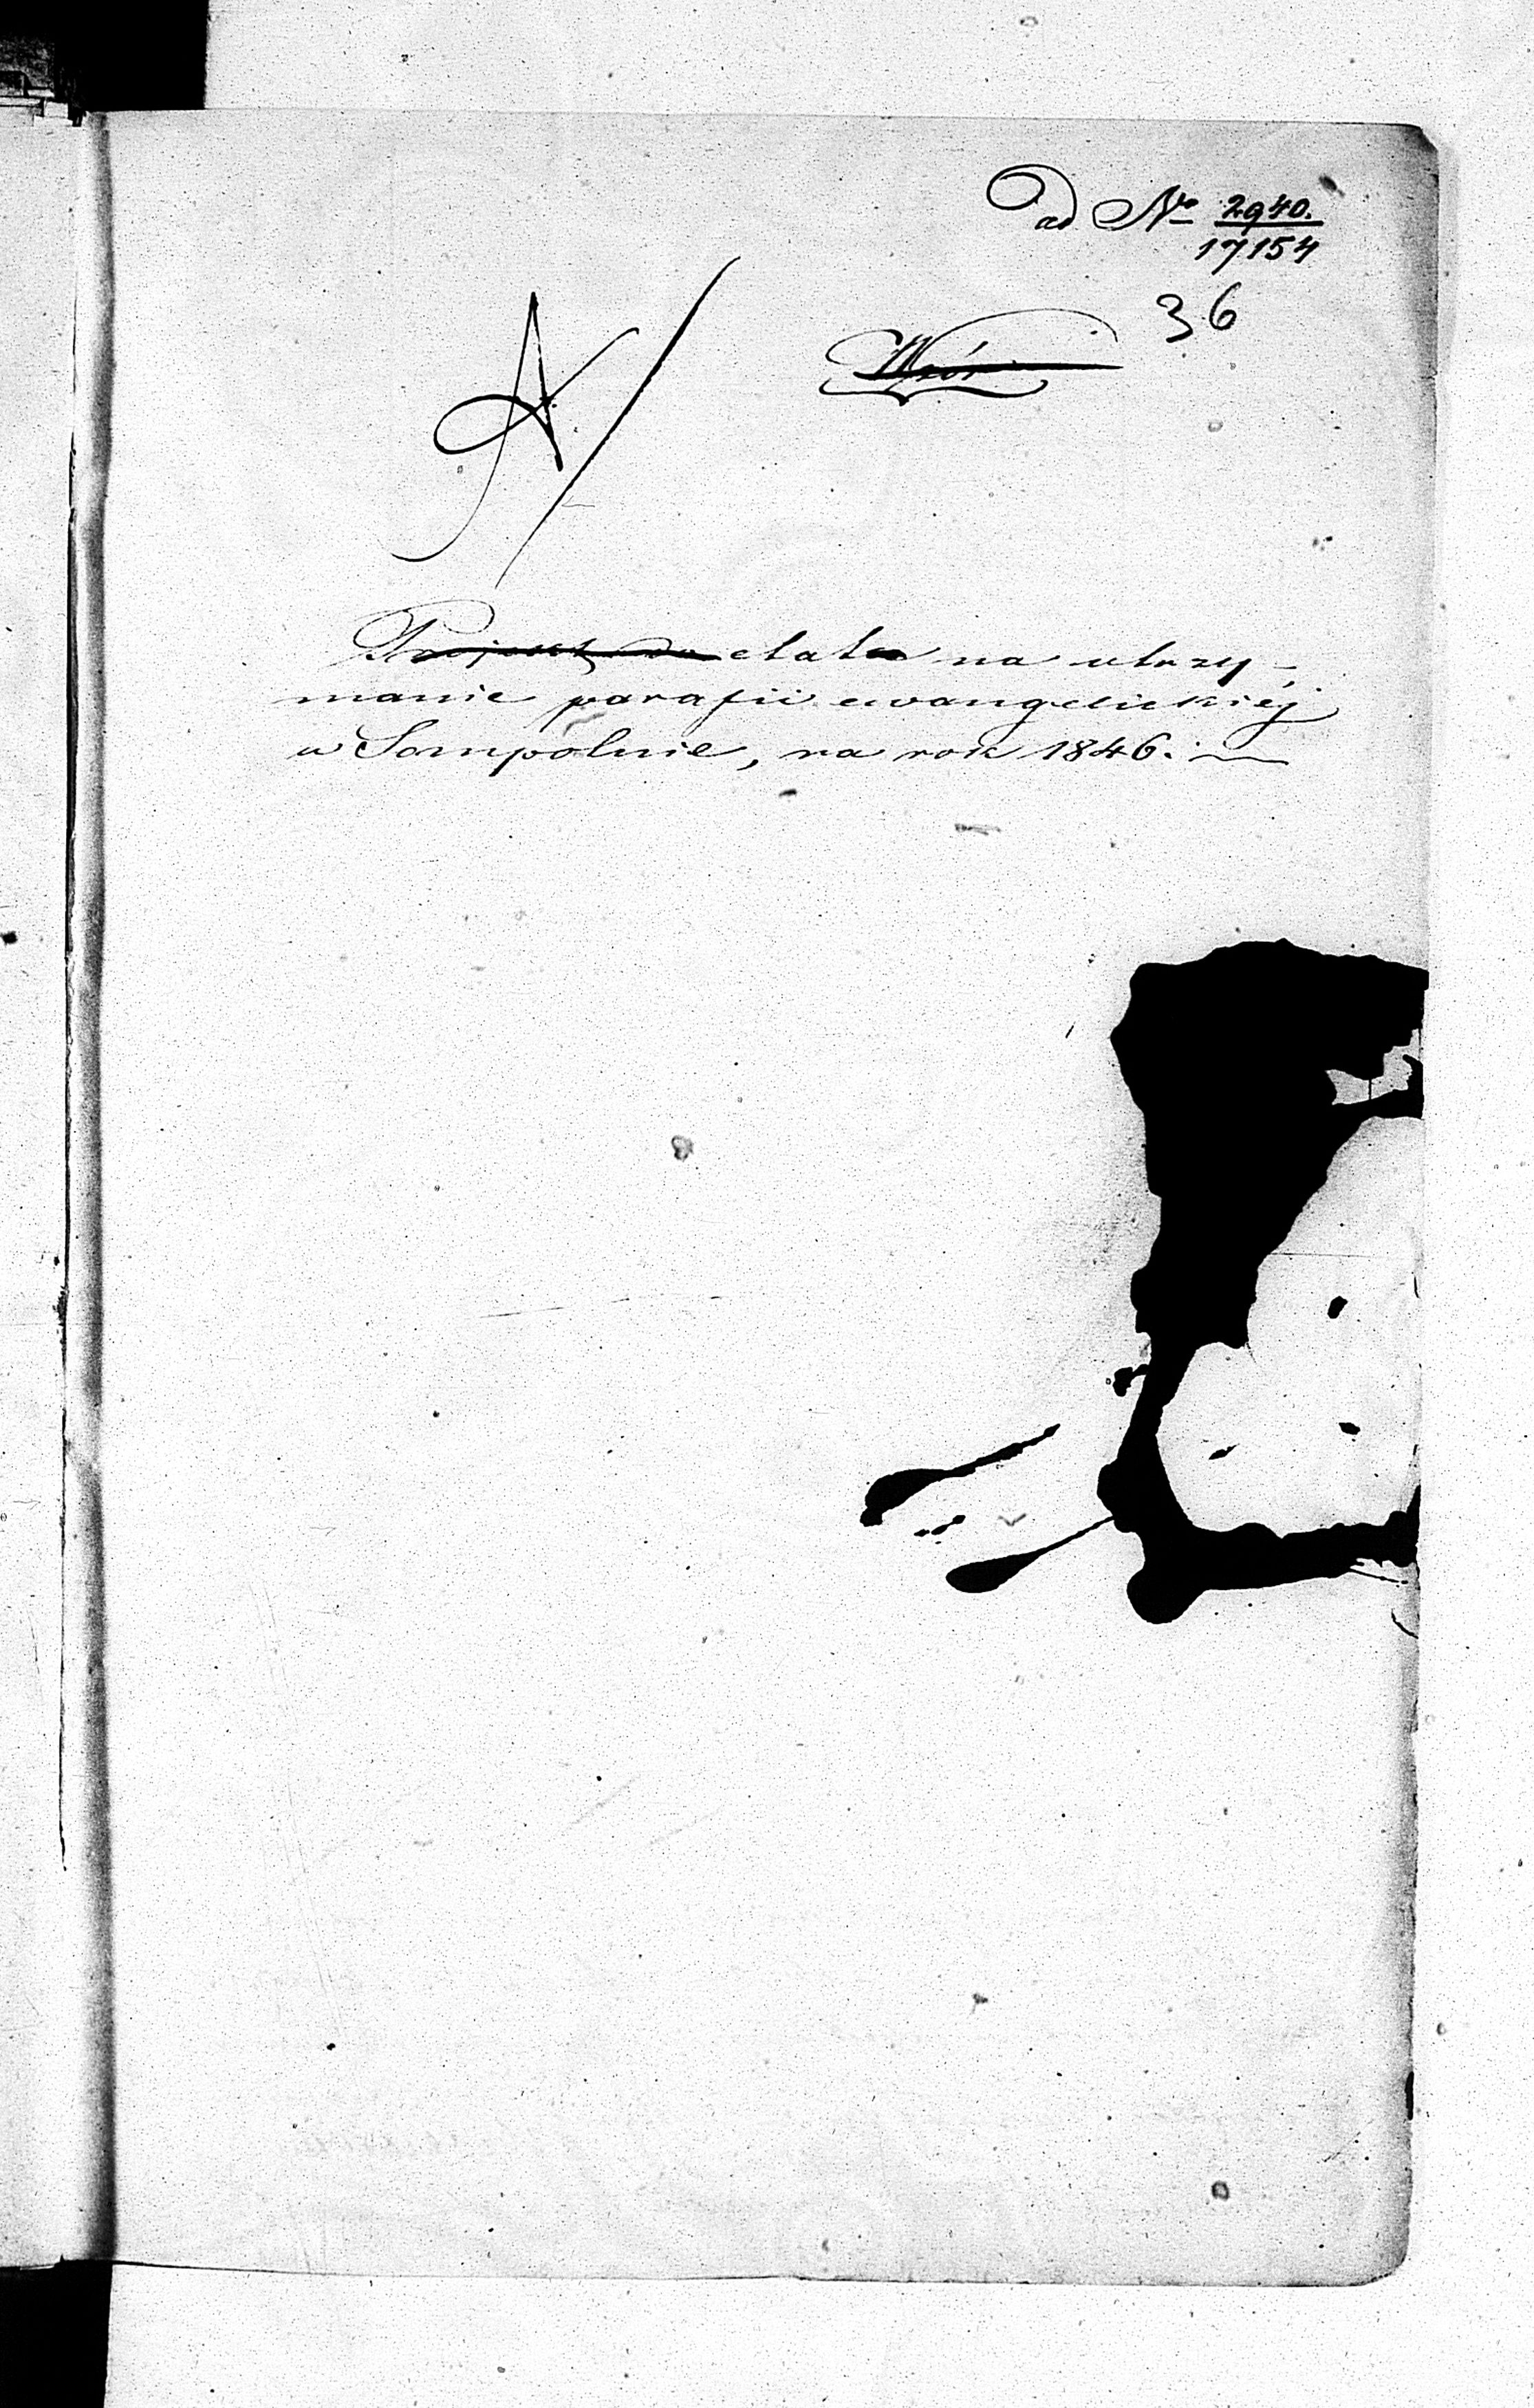 ad No 2940.
17154
36
A/
Wzór
Projekt do etatu na utrzy-
manie parafii ewangelickiéj
w Sompolnie, na rok 1846.